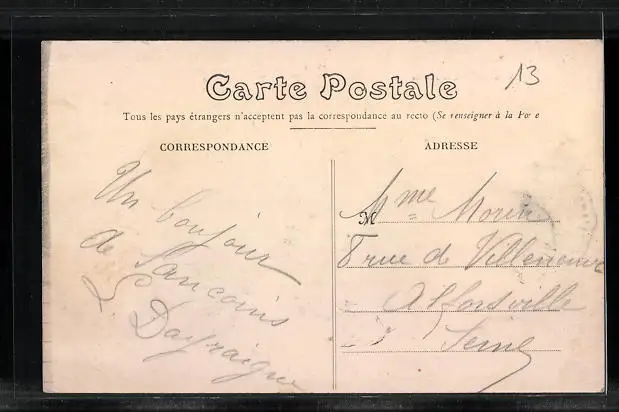 13
Carte Postale
Tous les pays étrangers n'acceptent pas la correspondance au recto (Se renseigner à la Pos e
CORRESPONDANCE
ADRESSE
Un bonjour
de Sancoins
Mme Morin
8 rue de Villeneuve
Alfortville
Seine